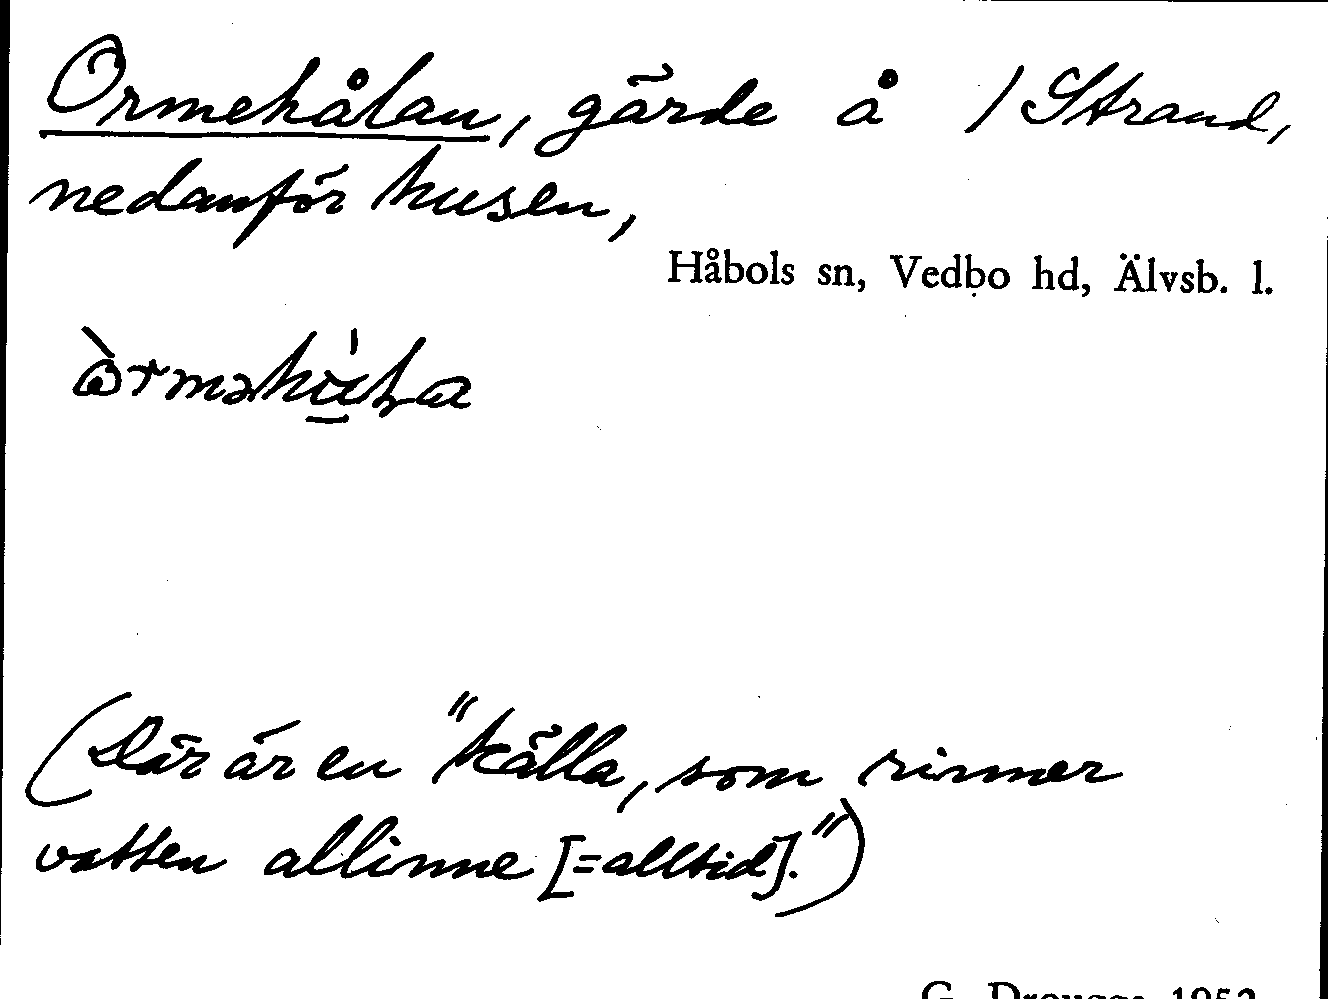 Ormehålan, gärde å /Strand,
nedanför husen,
Håbols sn, Vedbo hd, Älvsb. l.
(Där är en "källa, som rinner
vatten allinne [=alltid].")
G. Drougge 1952